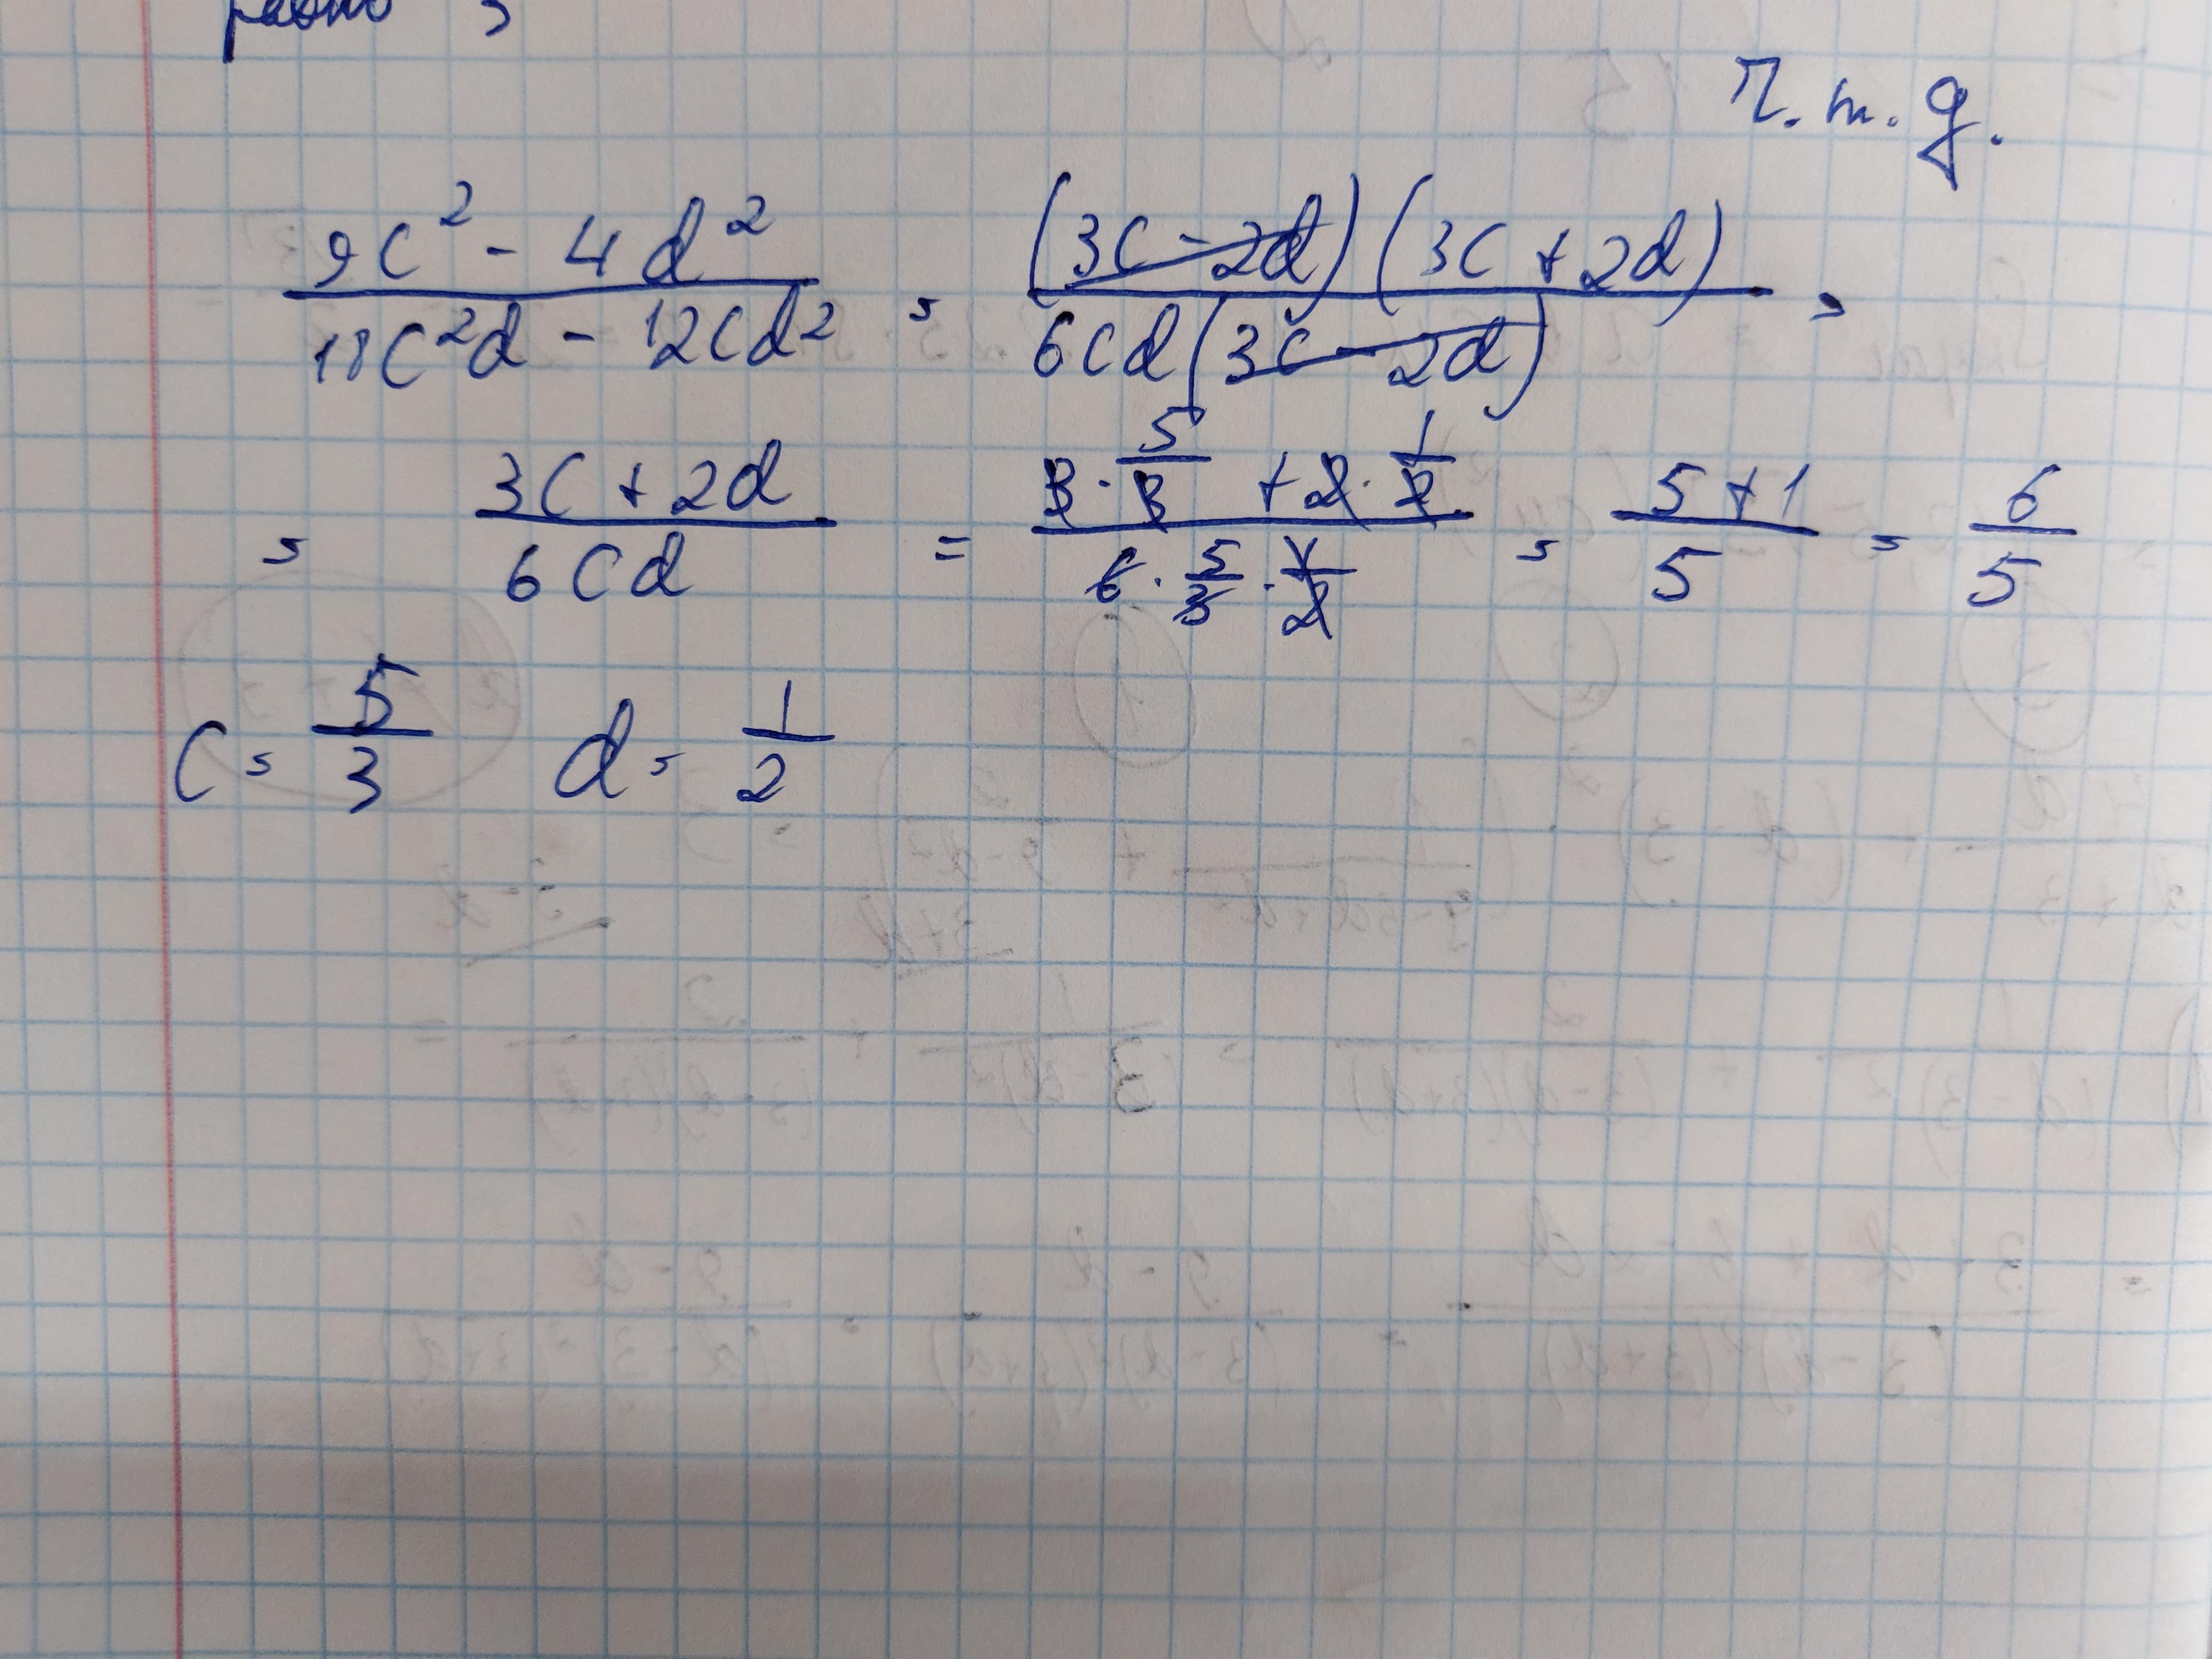 равно
ч.т.д.
\frac{9c^2 - 4d^2}{18c^2d - 12cd^2} = \frac{(3c - 2d)(3c + 2d)}{6cd(3c - 2d)} =
= \frac{3c + 2d}{6cd} = \frac{3 \cdot \frac{5}{3} + 2 \cdot \frac{1}{2}}{6 \cdot \frac{5}{3} \cdot \frac{1}{2}} = \frac{5 + 1}{5} = \frac{6}{5}
c = \frac{5}{3} d = \frac{1}{2}